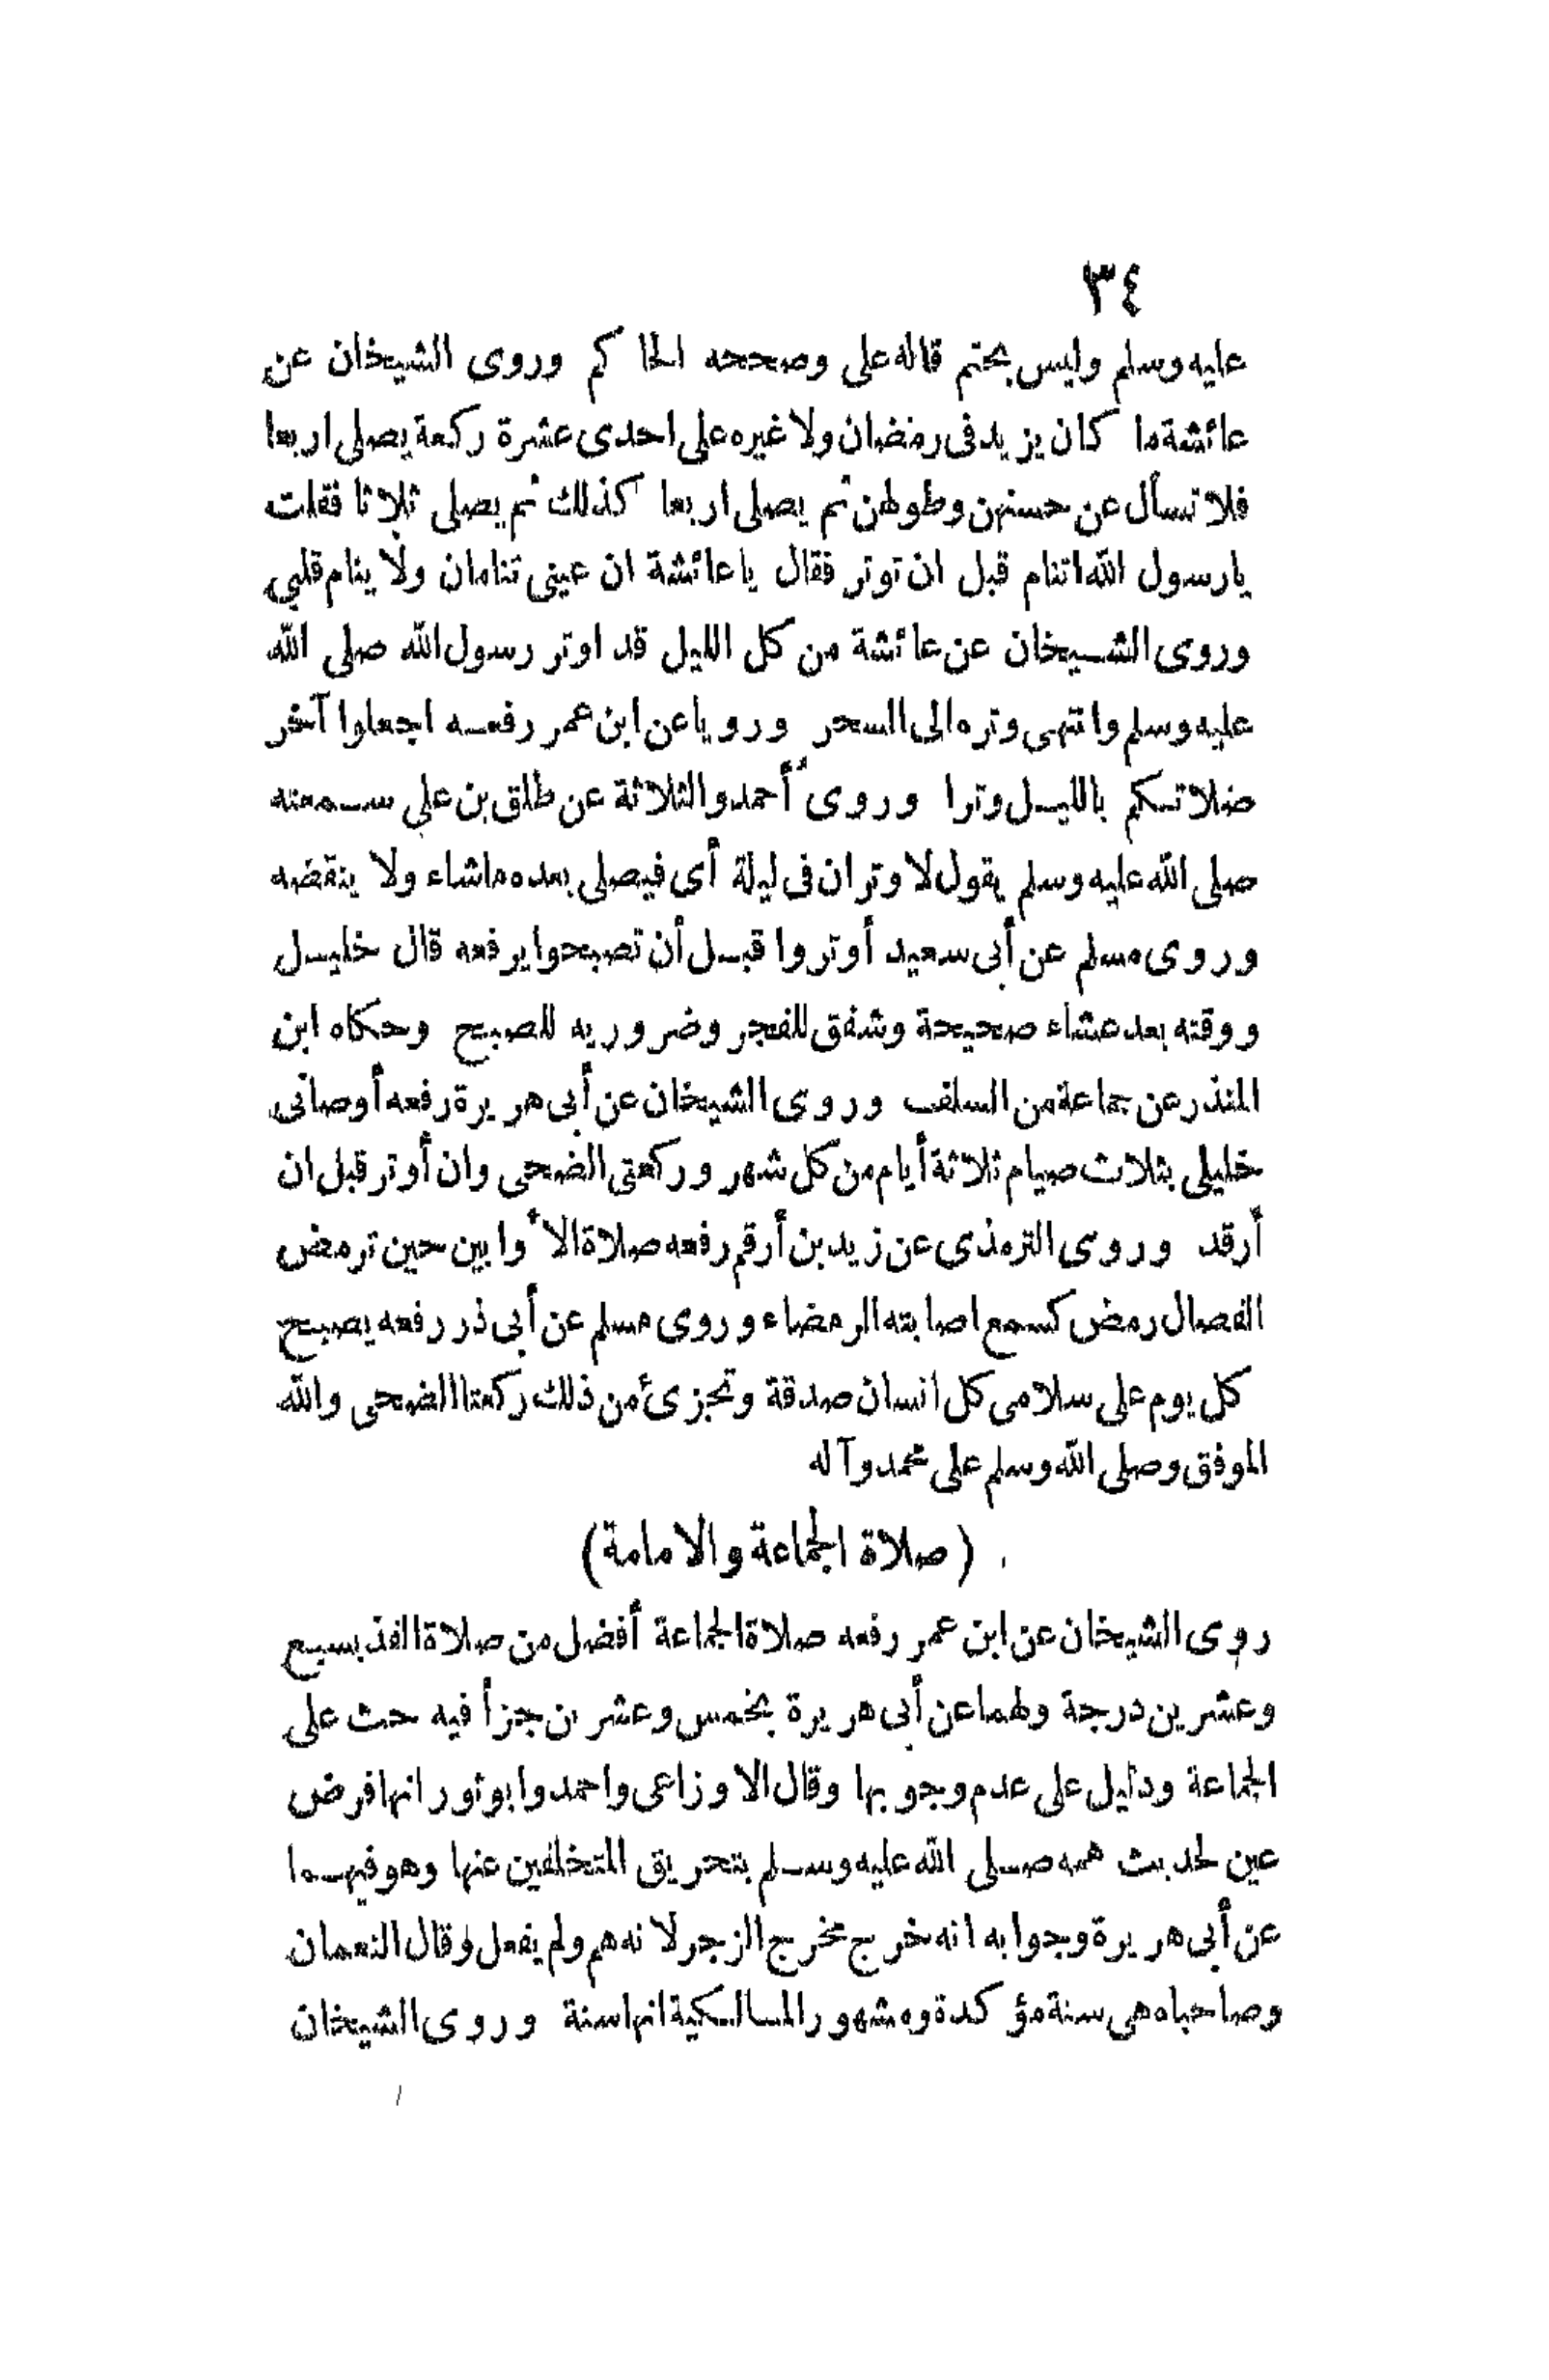 ٣٤
عليه وسلم وليس بحتم قاله على وصححه الحاكم وروى الشيخان عن
عائشة ما كان يزيد فى رمضان ولا غيره على احدى عشرة ركعة يصلى اربعا
فلا تسأل عن حسنهن وطولهن ثم يصلى اربعا كذلك ثم يصلى ثلاثا فقلت
يارسول الله اتنام قبل ان توتر فقال ياعائشة ان عينى تنامان ولا ينام قلبى
وروى الشيخان عن عائشة من كل الليل قد اوتر رسول الله صلى الله
عليه وسلم وانتهى وتره الى السحر ورويا عن ابن عمر رفعه اجعلوا آخر
صلاتكم بالليل وترا وروى أحمد والثلاثة عن طلق بن على سمعته
صلى الله عليه وسلم يقول لا وتران فى ليلة أى فيصلى بعده ماشاء ولا ينقضه
وروى مسلم عن أبى سعيد أوتروا قبل أن تصبحوا يرفعه قال خليل
ووقته بعد عشاء صحيحة وشفق للفجر وضروريه للصبح وحكاه ابن
المنذر عن جماعة من السلف وروى الشيخان عن أبى هريرة رفعه أوصانى
خليلى بثلاث صيام ثلاثة أيام من كل شهر وركعتى الضحى وان أوتر قبل ان
أرقد وروى الترمذى عن زيد بن أرقم رفعه صلاة الأوابين حين ترمض
الفصال رمض كسمع اصابته الرمضاء وروى مسلم عن أبى ذر رفعه يصبح
كل يوم على سلامى كل انسان صدقة وتجزىء من ذلك ركعتا الضحى والله
الموفق وصلى الله وسلم على محمد وآله
(صلاة الجماعة والامامة)
روى الشيخان عن ابن عمر رفعه صلاة الجماعة أفضل من صلاة الفذ بسبع
وعشرين درجة ولهما عن أبى هريرة بخمس وعشرين جزأ فيه حث على
الجماعة ودليل على عدم وجوبها وقال الاوزاعى واحمد وابوثور انها فرض
عين لحديث همه صلى الله عليه وسلم بتحريق المتخلفين عنها وهو فيهما
عن أبى هريرة وجوابه انه خرج مخرج الزجر لانه هم ولم يفعل وقال النعمان
وصاحباه هى سنة مؤكدة ومشهور المالكية انها سنة وروى الشيخان